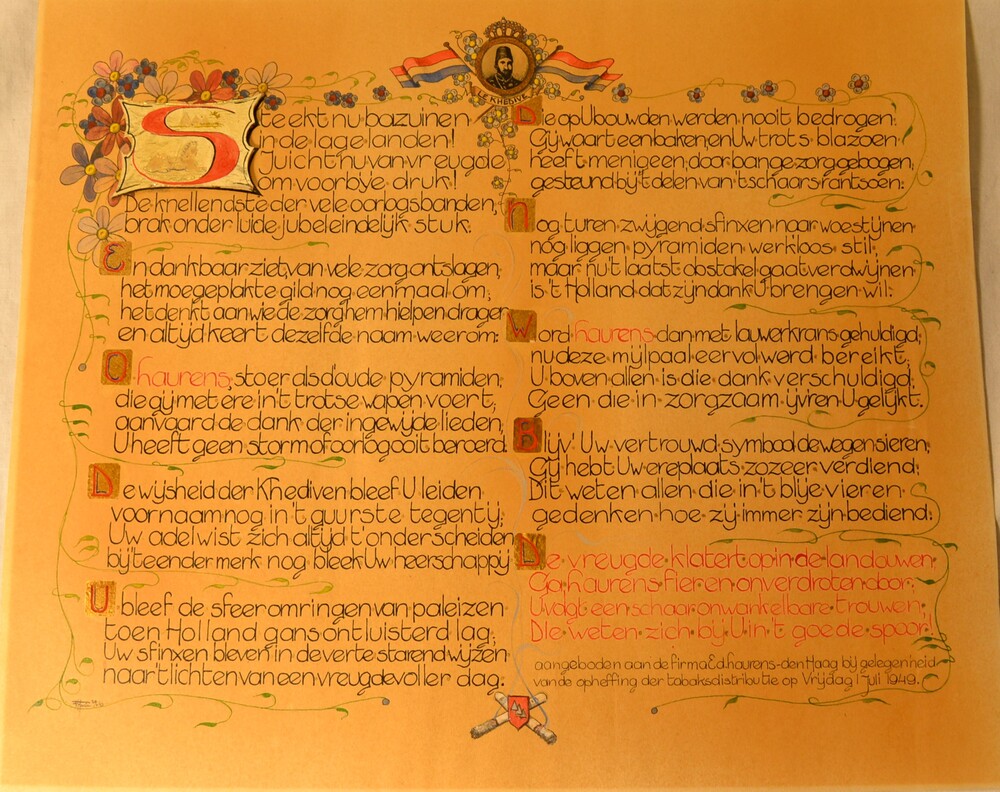 LE KHEDIVE
Steekt nu bazuinen
in de lage landen!
Juicht nu van vreugde
om voorbije druk!
De knellendste der vele oorlogsbanden,
brak onder luide jubel eindelijk stuk.
En dankbaar ziet, van vele zorg ontslagen,
het moegeplakte gild nog eenmaal om;
het denkt aan wie de zorg hem hielpen dragen
en altijd keert dezelfde naam weerom:
O Laurens, stoer als d'oude pyramiden,
die gij met ere in 't trotse wapen voert,
aanvaard de dank der ingewijde lieden,
U heeft geen storm of oorlog ooit beroerd.
De wijsheid der Khediven bleef U leiden
voornaam nog in 't guurste tegentij;
Uw adel wist zich altijd t'onderscheiden
bij 't eender merk nog bleek Uw heerschappij
U bleef de sfeer omringen van paleizen
toen Holland gans ontluisterd lag;
Uw sfinxen bleven in de verte starend wijzen
naar 't lichten van een vreugdevoller dag.
Die op U bouwden werden nooit bedrogen:
Gij waart een baken, en Uw trots blazoen
heeft menigeen, door bange zorg gebogen,
gesteund bij 't delen van 't schaars rantsoen.
Nog turen zwijgend sfinxen naar woestijnen
nog liggen pyramiden werkloos stil,
maar nu 't laatst obstakel gaat verdwijnen
is 't Holland dat zijn dank U brengen wil.
Word Laurens dan met lauwerkrans gehuldigd,
nu deze mijlpaal eervol werd bereikt,
U boven allen is die dank verschuldigd,
Geen die in zorgzaam ijv'ren U gelijkt.
Blijv' Uw vertrouwd symbool de wegen sieren,
Gij hebt Uw ereplaats zozeer verdiend;
Dit weten allen die in 't blije vieren
gedenken hoe zij immer zijn bediend:
De vreugde klatert op in de landouwen
Ga, Laurens fier en onverdroten door;
U volgt een schaar onwankelbare trouwen,
Die weten zich bij U in 't goede spoor!
aangeboden aan de firma Ed. Laurens-den Haag bij gelegenheid
van de opheffing der tabaksdistributie op Vrijdag 1 Juli 1949.